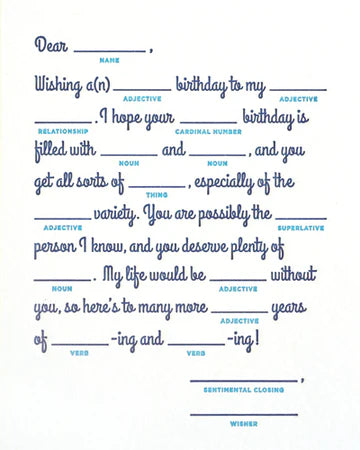 Dear __________ ,
NAME
Wishing a(n) ________ birthday to my ________
ADJECTIVE ADJECTIVE
________ . I hope your ________ birthday is
RELATIONSHIP CARDINAL NUMBER
filled with ________ and ________ , and you
NOUN NOUN
get all sorts of ________ , especially of the
THING
________ variety. You are possibly the ________
ADJECTIVE SUPERLATIVE
person I know, and you deserve plenty of
________ . My life would be ________ without
NOUN ADJECTIVE
you, so here's to many more ________ years
ADJECTIVE
of ________ -ing and ________ -ing!
VERB VERB
______________ ,
SENTIMENTAL CLOSING
______________
WISHER